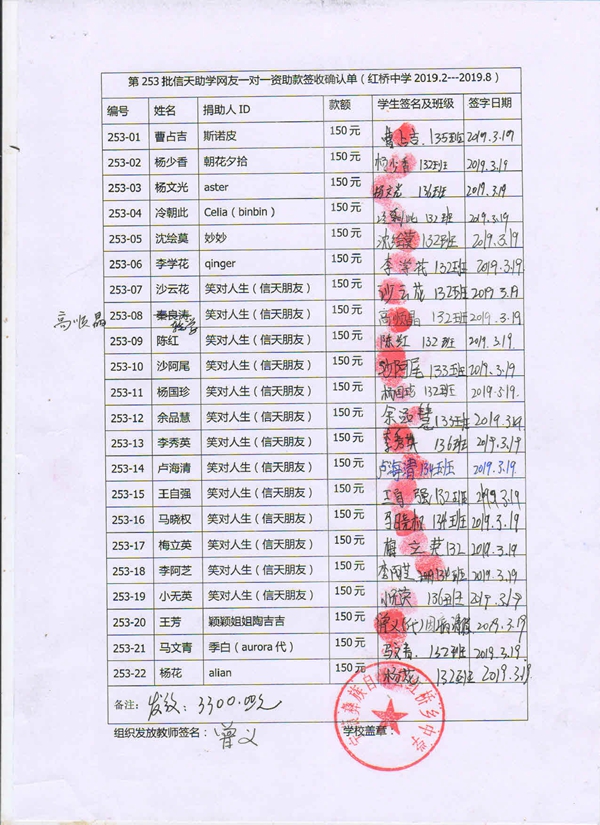 第 253 批信天助学网友一对一资助款签收确认单（红桥中学 2019.2---2019.8）
编号 姓名 捐助人 ID 款额 学生签名及班级 签字日期
253-01 曹占吉 斯诺皮 150 元 曹占吉 135班 2019.3.19
253-02 杨少香 朝花夕拾 150 元 杨少香 132班 2019.3.19
253-03 杨文光 aster 150 元 杨文光 136班 2019.3.19
253-04 冷朝此 Celia（binbin） 150 元 132班 2019.3.19
253-05 沈绘莫 妙妙 150 元 沈绘莫 132班 2019.3.19
253-06 李学花 qinger 150 元 李学花 132班 2019.3.19.
253-07 沙云花 笑对人生（信天朋友） 150 元 沙云花 132班 2019 3.19
高顺晶 253-08 秦良涛 笑对人生（信天朋友） 150 元 高顺晶 132班 2019.3.19
253-09 陈红 笑对人生（信天朋友） 150 元 陈红 132班 2019.3.19
253-10 沙阿尾 笑对人生（信天朋友） 150 元 沙阿尾 133班 2019.3.19
253-11 杨国珍 笑对人生（信天朋友） 150 元 杨国珍 132班 2019.3.19
253-12 余品慧 笑对人生（信天朋友） 150 元 余品慧 133班 2019.3.19
253-13 李秀英 笑对人生（信天朋友） 150 元 李秀英 136班 2019.3.19
253-14 卢海清 笑对人生（信天朋友） 150 元 卢海清 134班 2019.3.19
253-15 王自强 笑对人生（信天朋友） 150 元 王自强 132班 2019.3.19
253-16 马晓权 笑对人生（信天朋友） 150 元 马晓权 134班 2019.3.19
253-17 梅立英 笑对人生（信天朋友） 150 元 梅立英 132 2019.3.19
253-18 李阿芝 笑对人生（信天朋友） 150 元 李阿芝 134班 2019.3.19
253-19 小无英 笑对人生（信天朋友） 150 元 136班 2019.3.19
253-20 王芳 颖颖姐姐陶吉吉 150 元 曾义(代)因病请假 2019.3.19
253-21 马文青 季白（aurora 代） 150 元 马文青. 132班 2019.3.19
253-22 杨花 alian 150 元 杨花 132班 2019.3.19
备注： 发放：3300.00元
组织发放教师签名： 曾义 学校盖章：
彝族自 红桥乡中学